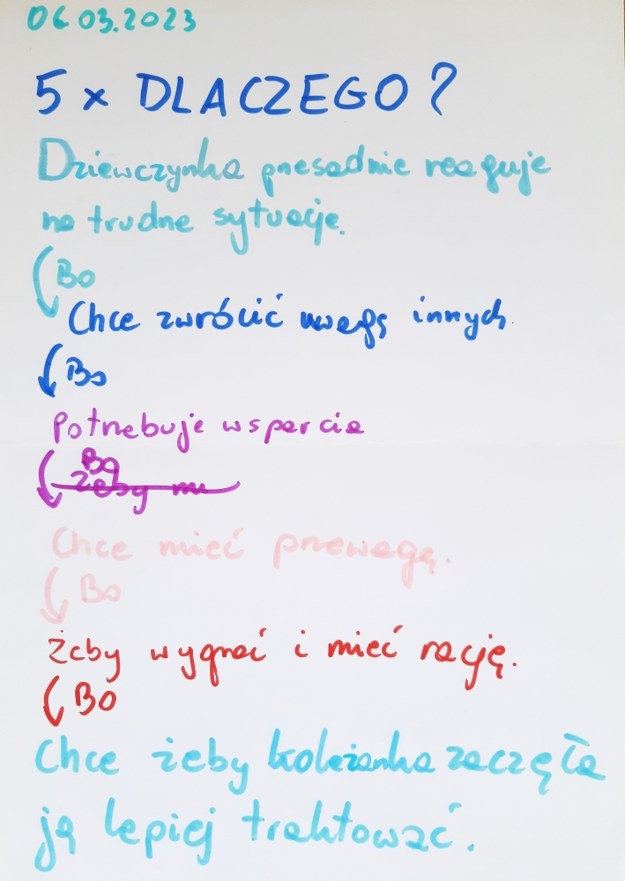 06.03.2023
5 x DLACZEGO?
Dziewczynka przesadnie reaguje
na trudne sytuacje.
Bo
Chce zwrócić uwagę innych.
Bo
Potrzebuje wsparcia
Bo
żeby mu
Chce mieć przewagę.
Bo
żeby wygrać i mieć rację.
Bo
Chce żeby koleżanka zaczęła
ją lepiej traktować.